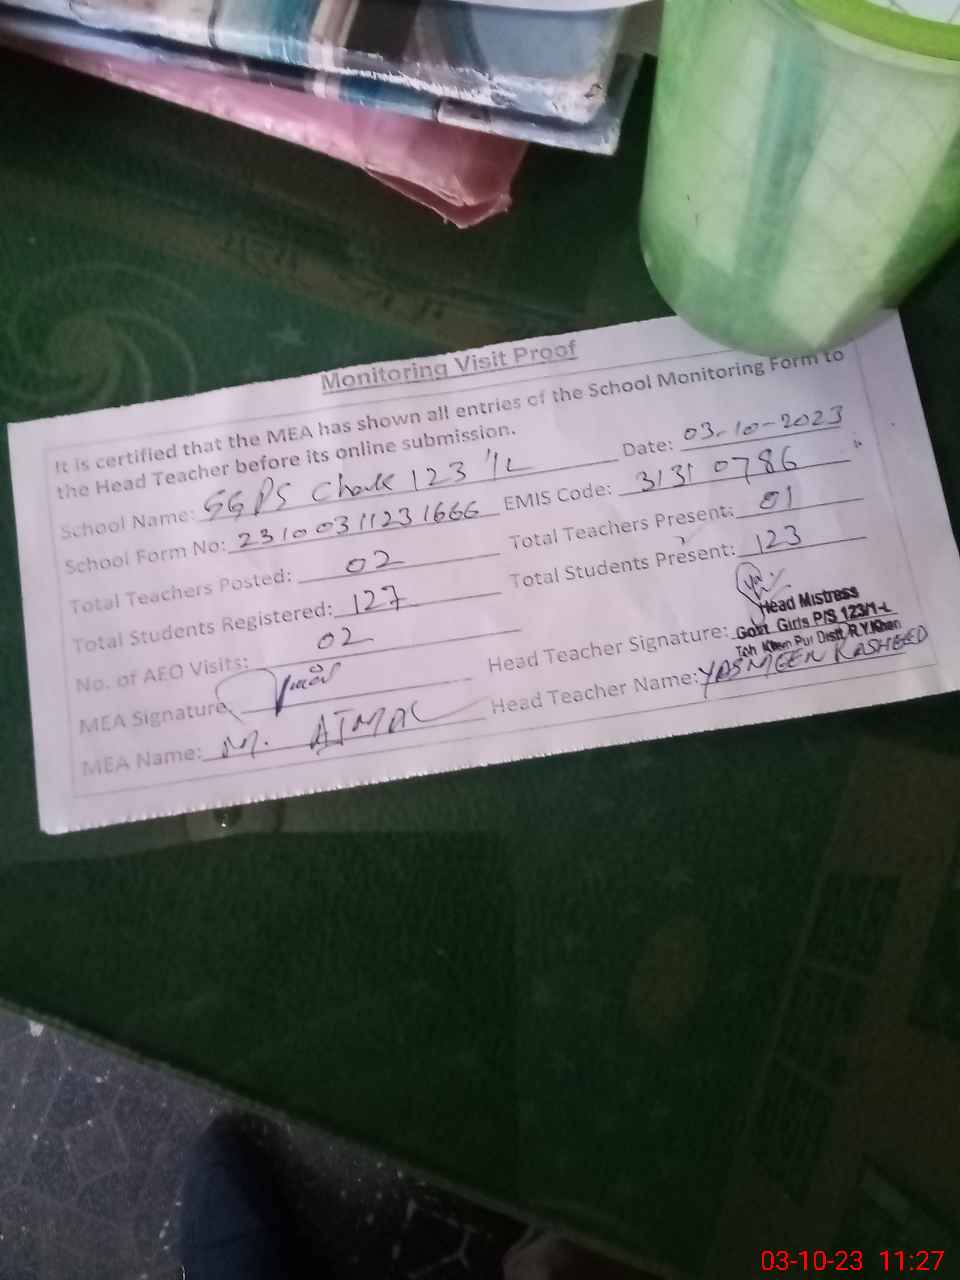 Monitoring Visit Proof
It is certified that the MEA has shown all entries of the School Monitoring Form to
the Head Teacher before its online submission.
School Name: GGPS Chak 123/1L Date: 03-10-2023
School Form No: 23100311231666 EMIS Code: 31310786
Total Teachers Posted: 02 Total Teachers Present: 01
Total Students Registered: 127 Total Students Present: 123
No. of AEO Visits: 02
MEA Signature: Head Teacher Signature:
Head Mistress
Govt. Girls P/S 123/1-L
Teh Khan Pur Distt. R.Y.Khan
MEA Name: M. AJMAL Head Teacher Name: YASMEEN RASHEED
03-10-23 11:27